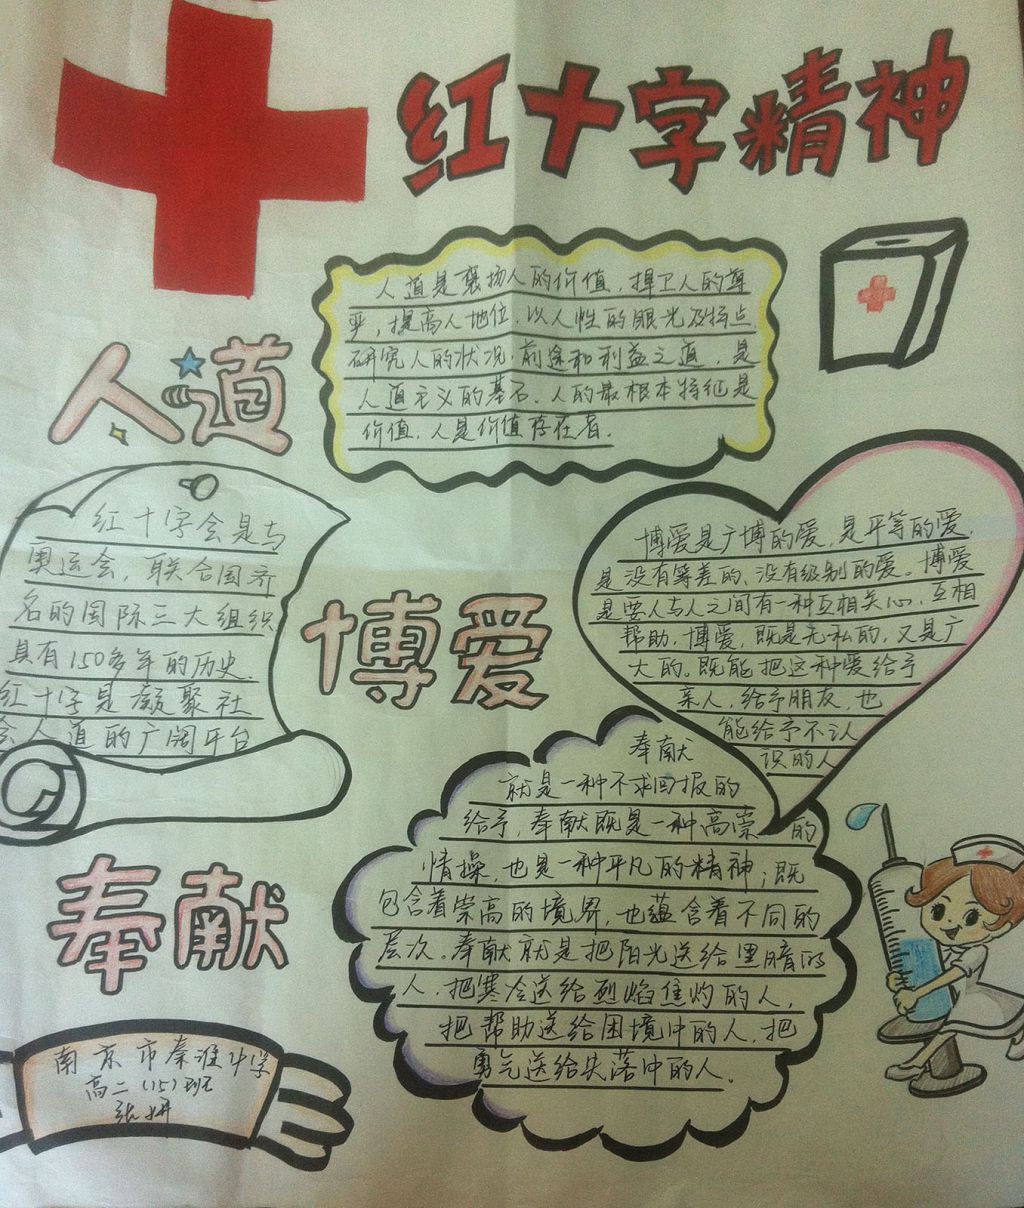 红十字精神
人道是褒扬人的价值，捍卫人的尊
严，提高人地位，以人性的眼光及特点
研究人的状况、前途和利益之道，是
人道主义的基石。人的最根本特征是
价值，人是价值存在者。
人道
红十字会是与
奥运会，联合国齐
名的国际三大组织
具有150多年的历史.
红十字是凝聚社
会人道的广阔平台
博爱是广博的爱，是平等的爱，
是没有等差的、没有级别的爱。博爱
是要人与人之间有一种互相关心，互相
帮助，博爱，既是无私的，又是广
大的。既能把这种爱给予
亲人，给予朋友，也
能给予不认
识的人
博爱
奉献
就是一种不求回报的
给予，奉献既是一种高崇的
情操，也是一种平凡的精神；既
包含着崇高的境界，也蕴含着不同的
层次。奉献就是把阳光送给黑暗的
人，把寒冷送给烈焰焦灼的人，
把帮助送给困境中的人，把
勇气送给失落中的人。
奉献
南京市秦淮中学
高二（15）班
张妍